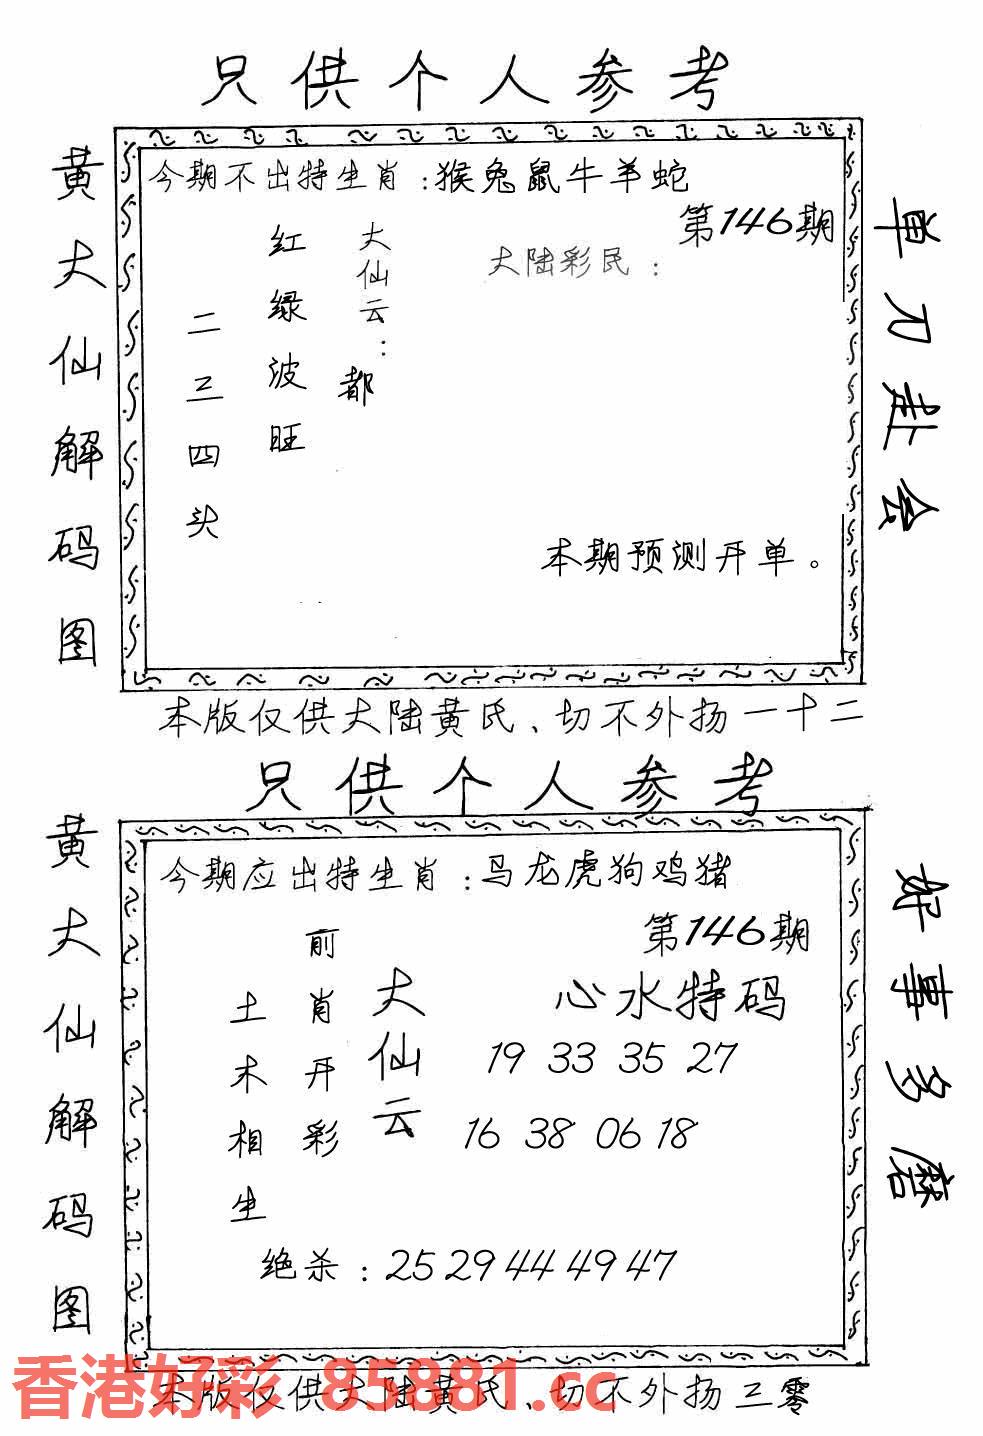 只供个人参考
黄大仙解码图
今期不出特生肖:猴兔鼠牛羊蛇
第146期
大陆彩民:
大仙云:
都
红绿波旺
二三四头
本期预测开单。
单刀赴会
本版仅供大陆黄氏、切不外扬一十二
只供个人参考
黄大仙解码图
今期应出特生肖:马龙虎狗鸡猪
第146期
心水特码
19 33 35 27
16 38 06 18
大仙云
前肖开彩
土木相生
绝杀:25 29 44 49 47
好事多磨
本版仅供大陆黄氏、切不外扬三零
香港好彩 85881.cc